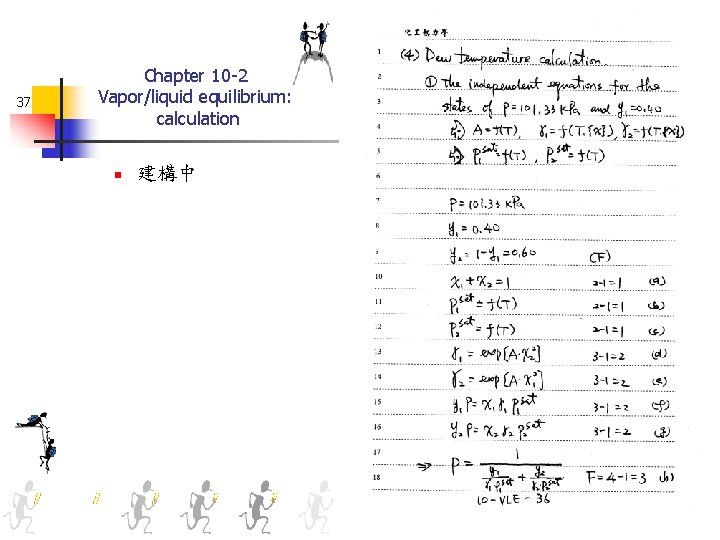 37
Chapter 10-2
Vapor/liquid equilibrium:
calculation
建構中
化工熱力學
1 (4) Dew temperature calculation.
2 ① The independent equations for the
states of P=101.33 kPa and y₁=0.40
4 A=f(T), γ₁=f(T,{x}), γ₂=f(T,{x})
5 P₁ˢᵃᵗ=f(T), P₂ˢᵃᵗ=f(T)
6
7 P=101.33 kPa
8 y₁=0.40
9 y₂=1-y₁=0.60 (F)
10 x₁+x₂=1 2-1=1 (a)
11 P₁ˢᵃᵗ=f(T) 2-1=1 (b)
12 P₂ˢᵃᵗ=f(T) 2-1=1 (c)
13 γ₁=exp[A·x₂²] 3-1=2 (d)
14 γ₂=exp[A·x₁²] 3-1=2 (e)
15 y₁P=x₁γ₁P₁ˢᵃᵗ 3-1=2 (f)
16 y₂P=x₂γ₂P₂ˢᵃᵗ 3-1=2 (g)
17
18 ⇒ P=1/(y₁/γ₁P₁ˢᵃᵗ + y₂/γ₂P₂ˢᵃᵗ) F=4-1=3 (h)
10-VLE-36